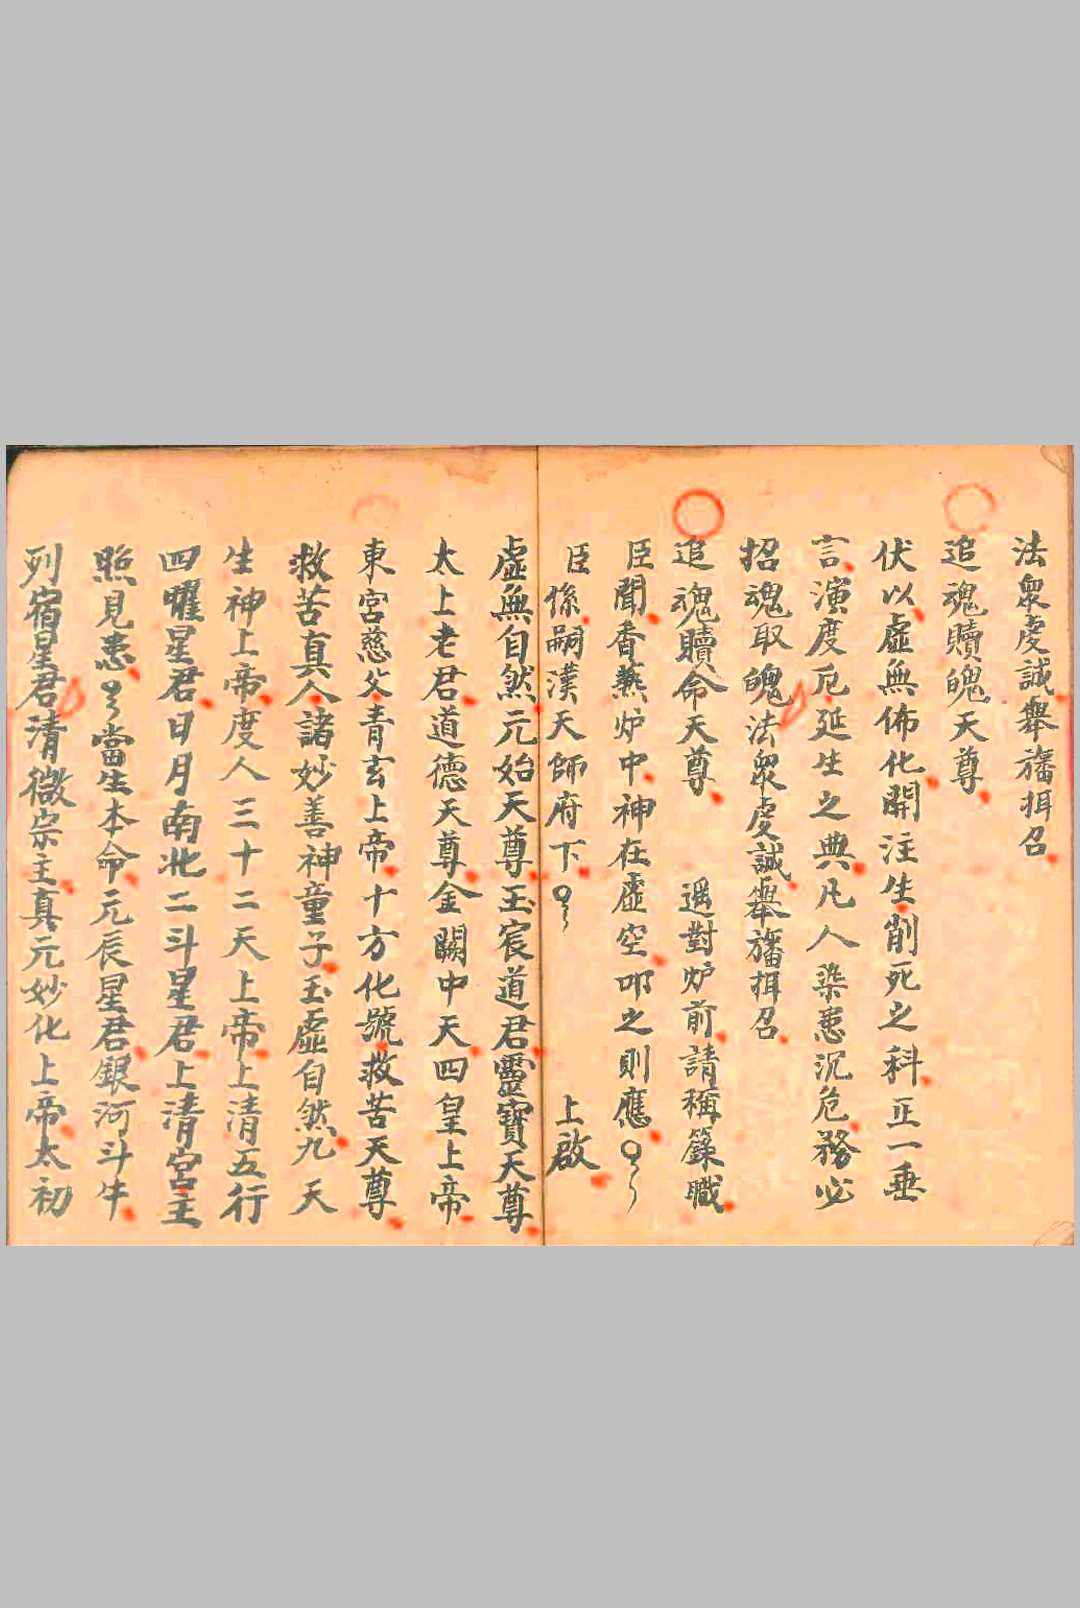 法衆虔誠舉旛揖召
追魂贖魄天尊
伏以虛無佈化開注生削死之科正一垂
言演度厄延生之典凡人染患沉危務必
招魂取魄法衆虔誠舉旛揖召
追魂贖命天尊 遥對炉前請稱籙職
臣聞香爇炉中神在虛空叩之則應
臣係嗣漢天師府下 上啟
虛無自然元始天尊玉宸道君靈寶天尊
太上老君道德天尊金闕中天四皇上帝
東宮慈父青玄上帝十方化號救苦天尊
救苦真人諸妙善神童子玉虛自然九天
生神上帝度人三十二天上帝上清五行
四曜星君日月南北二斗星君上清宮主
照見患當生本命元辰星君銀河斗牛
列宿星君清微宗主真元妙化上帝太初